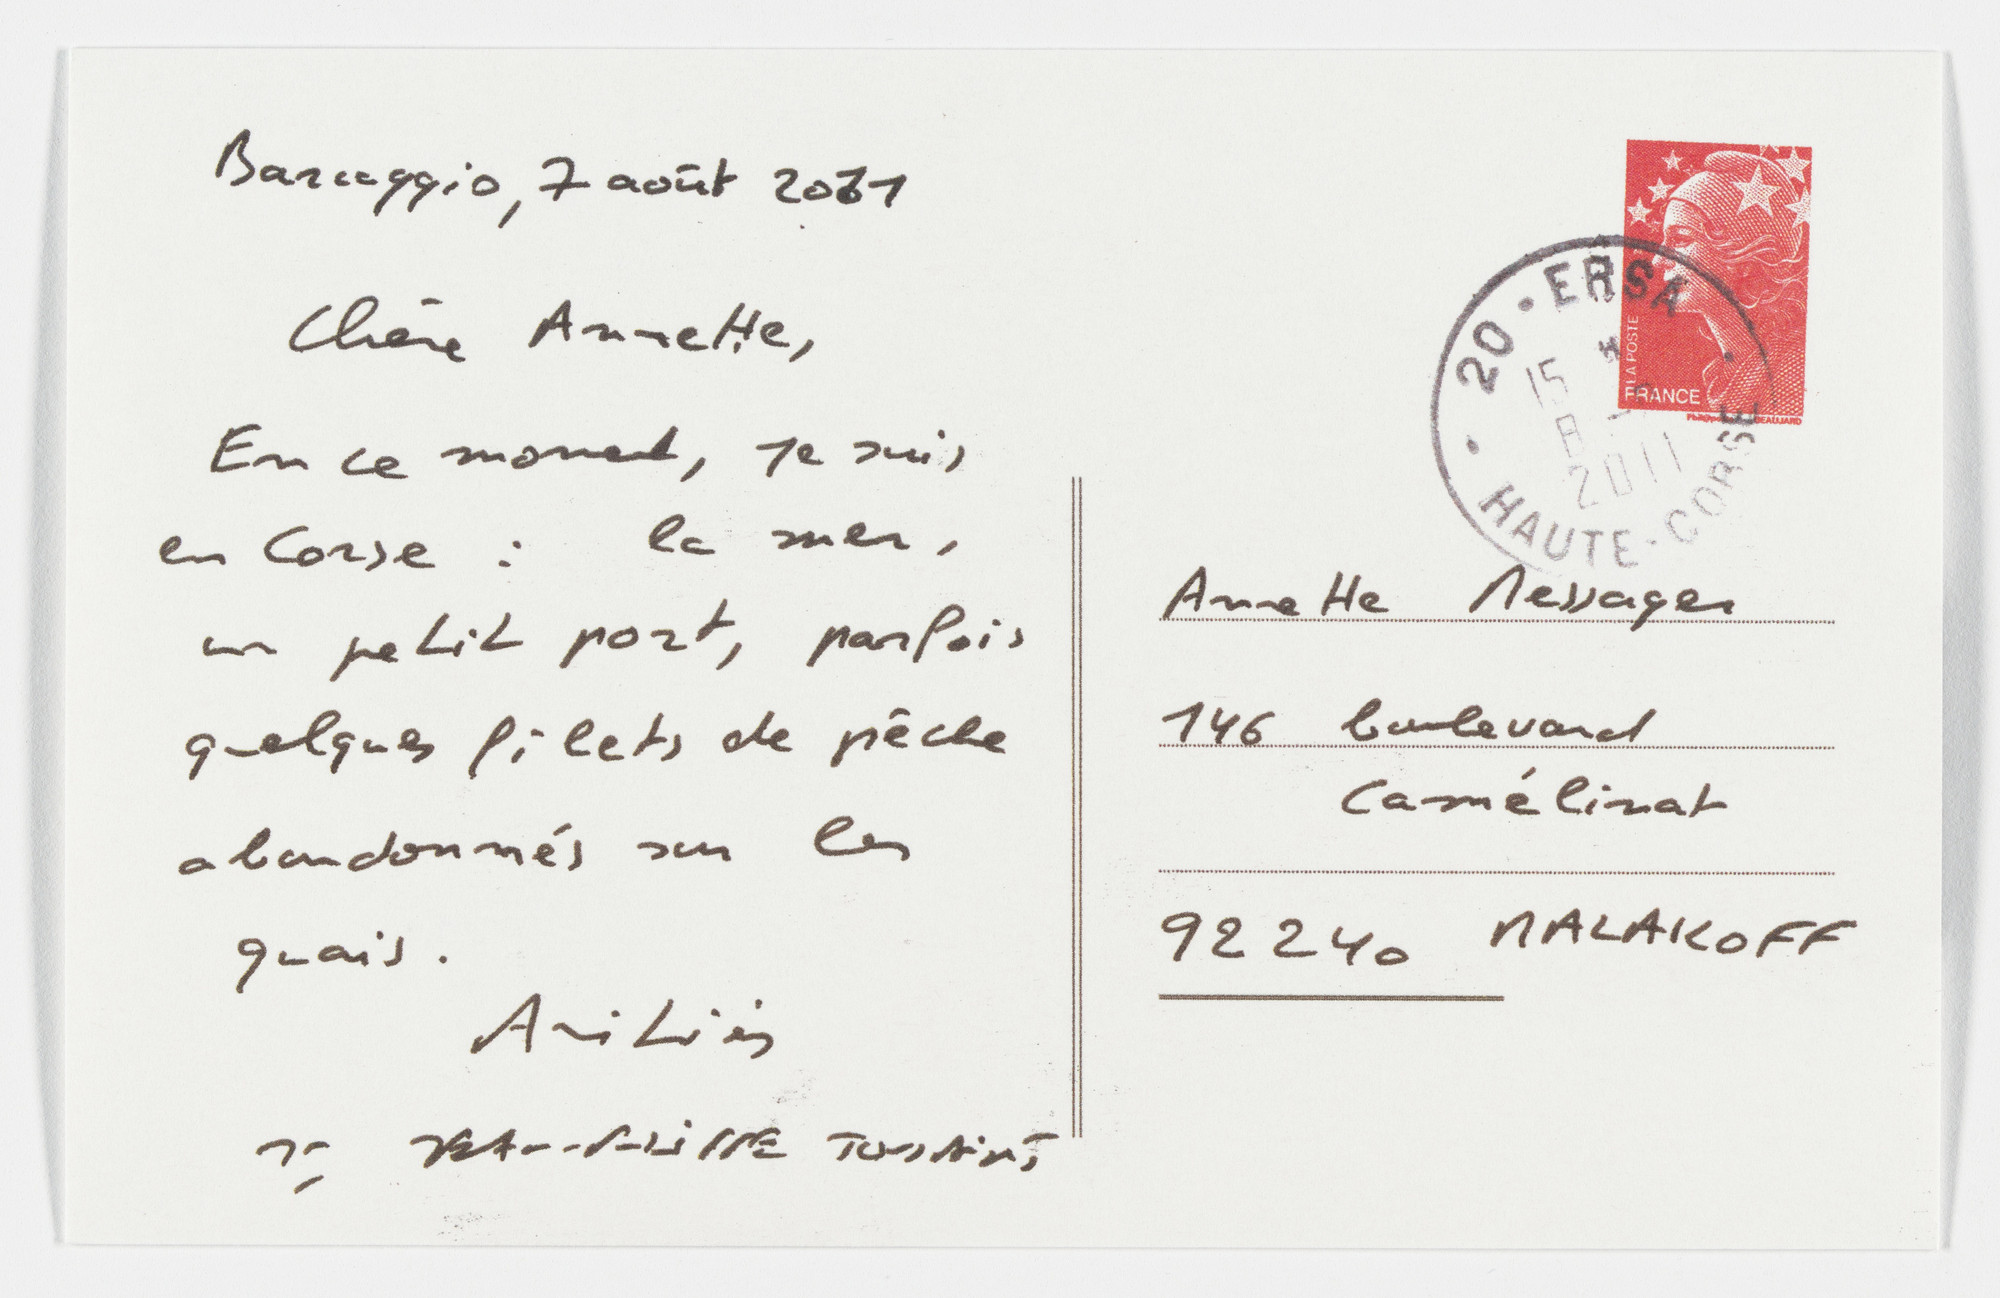 Barcaggio, 7 août 2011
Chère Annette,
En ce moment, je suis
en Corse : la mer,
un petit port, parfois
quelques filets de pêche
abandonnés sur les
quais.
Amitiés
JEAN-PHILIPPE TOUSSAINT
LA POSTE
FRANCE
20 · ERSA
15 *
8
2011
HAUTE-CORSE
Annette Messager
146 boulevard
Camélinat
92240 MALAKOFF